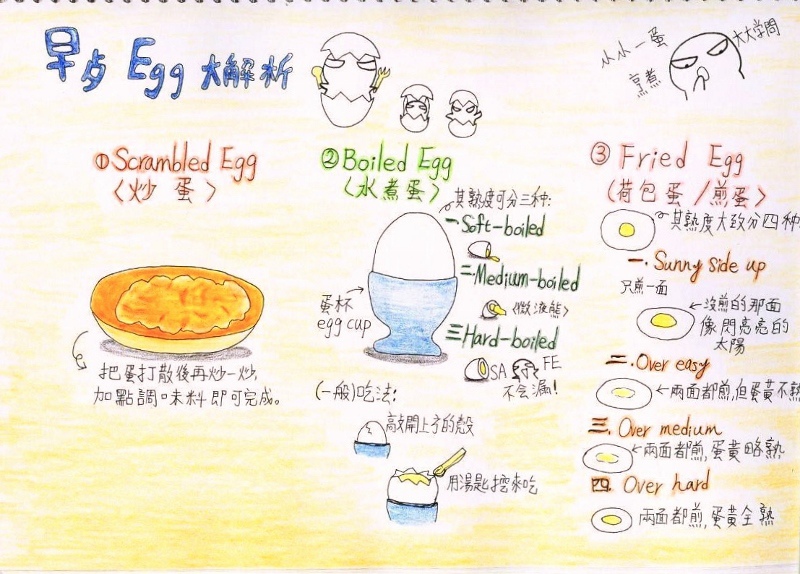 早点 Egg 大解析
小小一蛋
烹煮
大大学問
①Scrambled Egg
〈炒蛋〉
把蛋打散後再炒一炒,
加點調味料即可完成。
②Boiled Egg
〈水煮蛋〉
其熟度可分三種:
一Soft-boiled
二Medium-boiled
〈微液態〉
三Hard-boiled
SAFE
不会漏!
蛋杯
egg cup
(一般)吃法:
敲開上方的殼
用湯匙挖來吃
③ Fried Egg
(荷包蛋/煎蛋〉
其熟度大致分四種
一. Sunny side up
只煎一面
沒煎的那面
像閃亮亮的
太陽
二. Over easy
兩面都煎,但蛋黃不熟
三. Over medium
兩面都煎,蛋黃略熟
四. Over hard
兩面都煎,蛋黃全熟